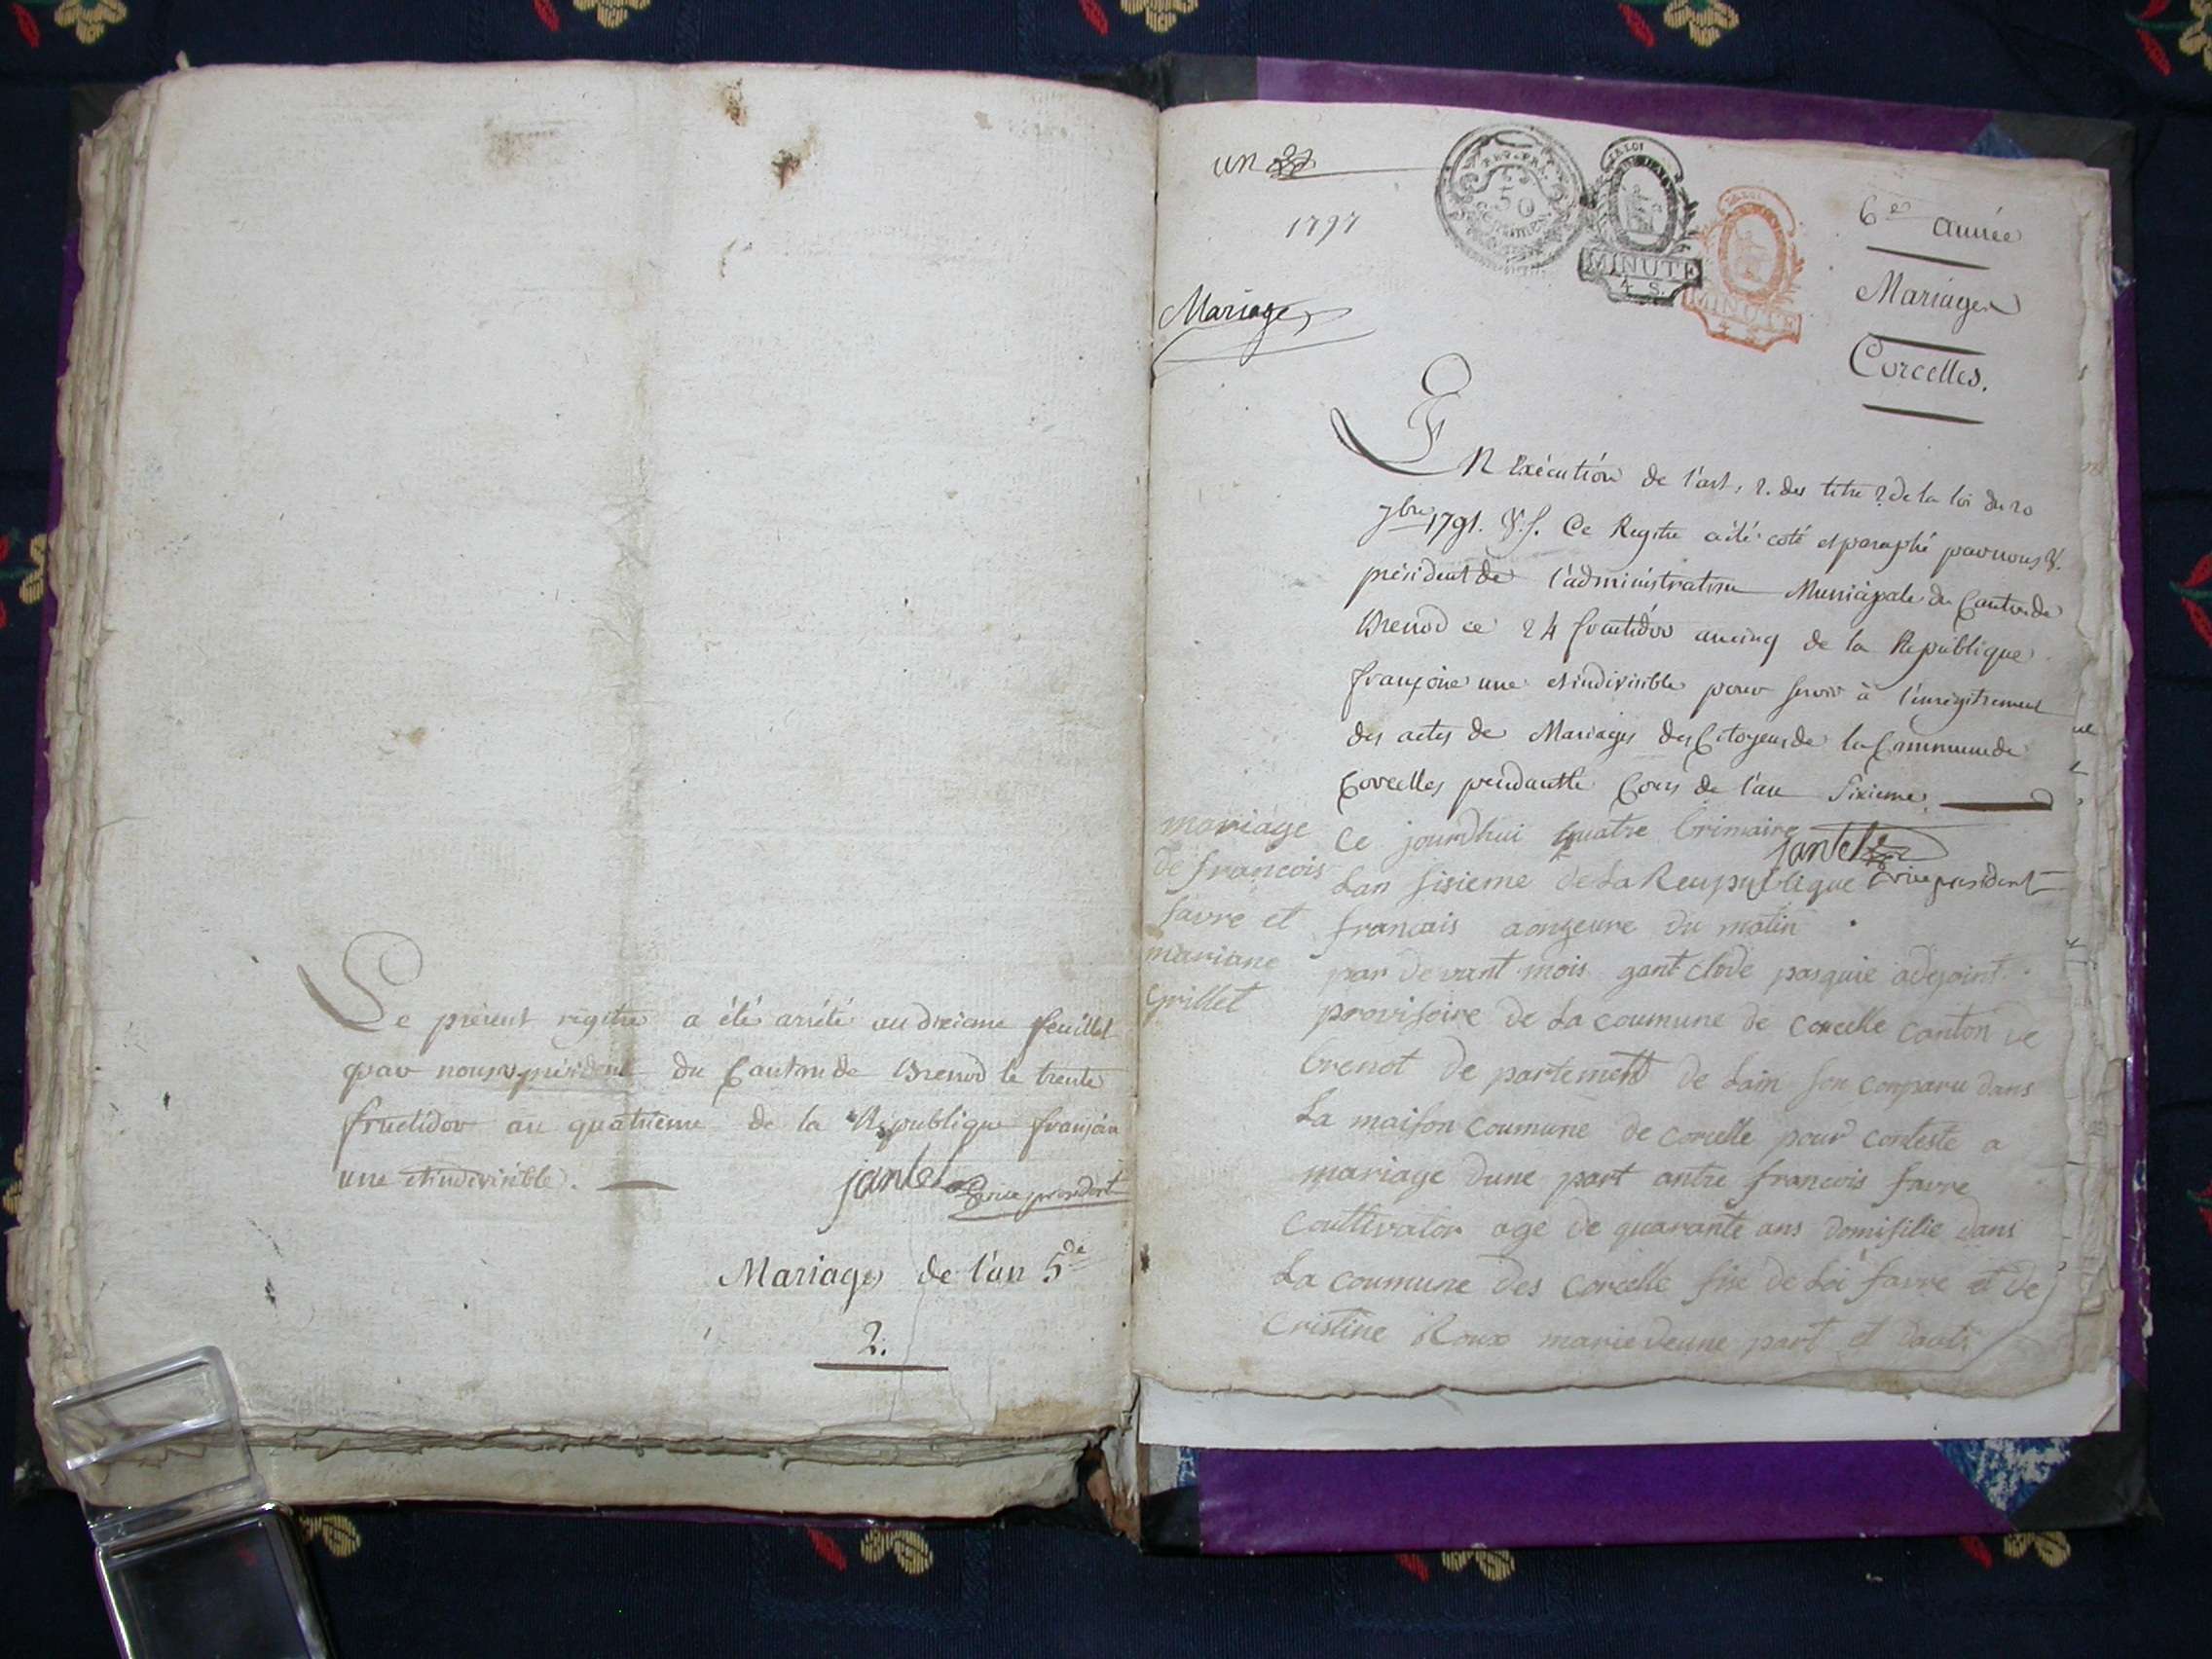 Le présent régitre a été arrété au dixieme feuillet
par nous président du Canton de Brenod le trente
fructidor an quatrieme de la République françoise
une et indivisible.
jantet vice president
Mariages de l'an 5de
2.
un
1797
REP. FRA.
50
CENTIMES
LA LOI
MINUTE
4 S.
LA LOI
MINUTE
6e année
Mariages
Corcelles.
Mariages
En Exécution de l'art. 2. des titre 2 de la loi du 20
7bre 1791. V.S. Ce Registre a été coté et paraphé par nous V.
président de l'administration Municipale du Canton de
Brenod ce 24 fructidor an cinq de la République
françoise une et indivisible pour servir à l'enregitrement
des actes de Mariages des Citoyens de la Commune de
Corcelles pendant le Cours de l'an Sixieme.
jantet vice president
mariage
de francois
favre et
mariane
Grillet
Ce jourdhui quatre brimaire
Lan sisieme de La Reupublique
francais a onzeure du matin
par devant mois gant clode pasquie adejoint
provisoire de La coumune de corcelle canton de
brenot de partement de Lain son conparu dans
La maison coumune de corcelle pour conteste a
mariage dune part antre francois favre
coultivator age de quarante ans domisilie dans
La coumune des corcelle fise de Loi favre et de
Cristine Roux marie deune part et dauts